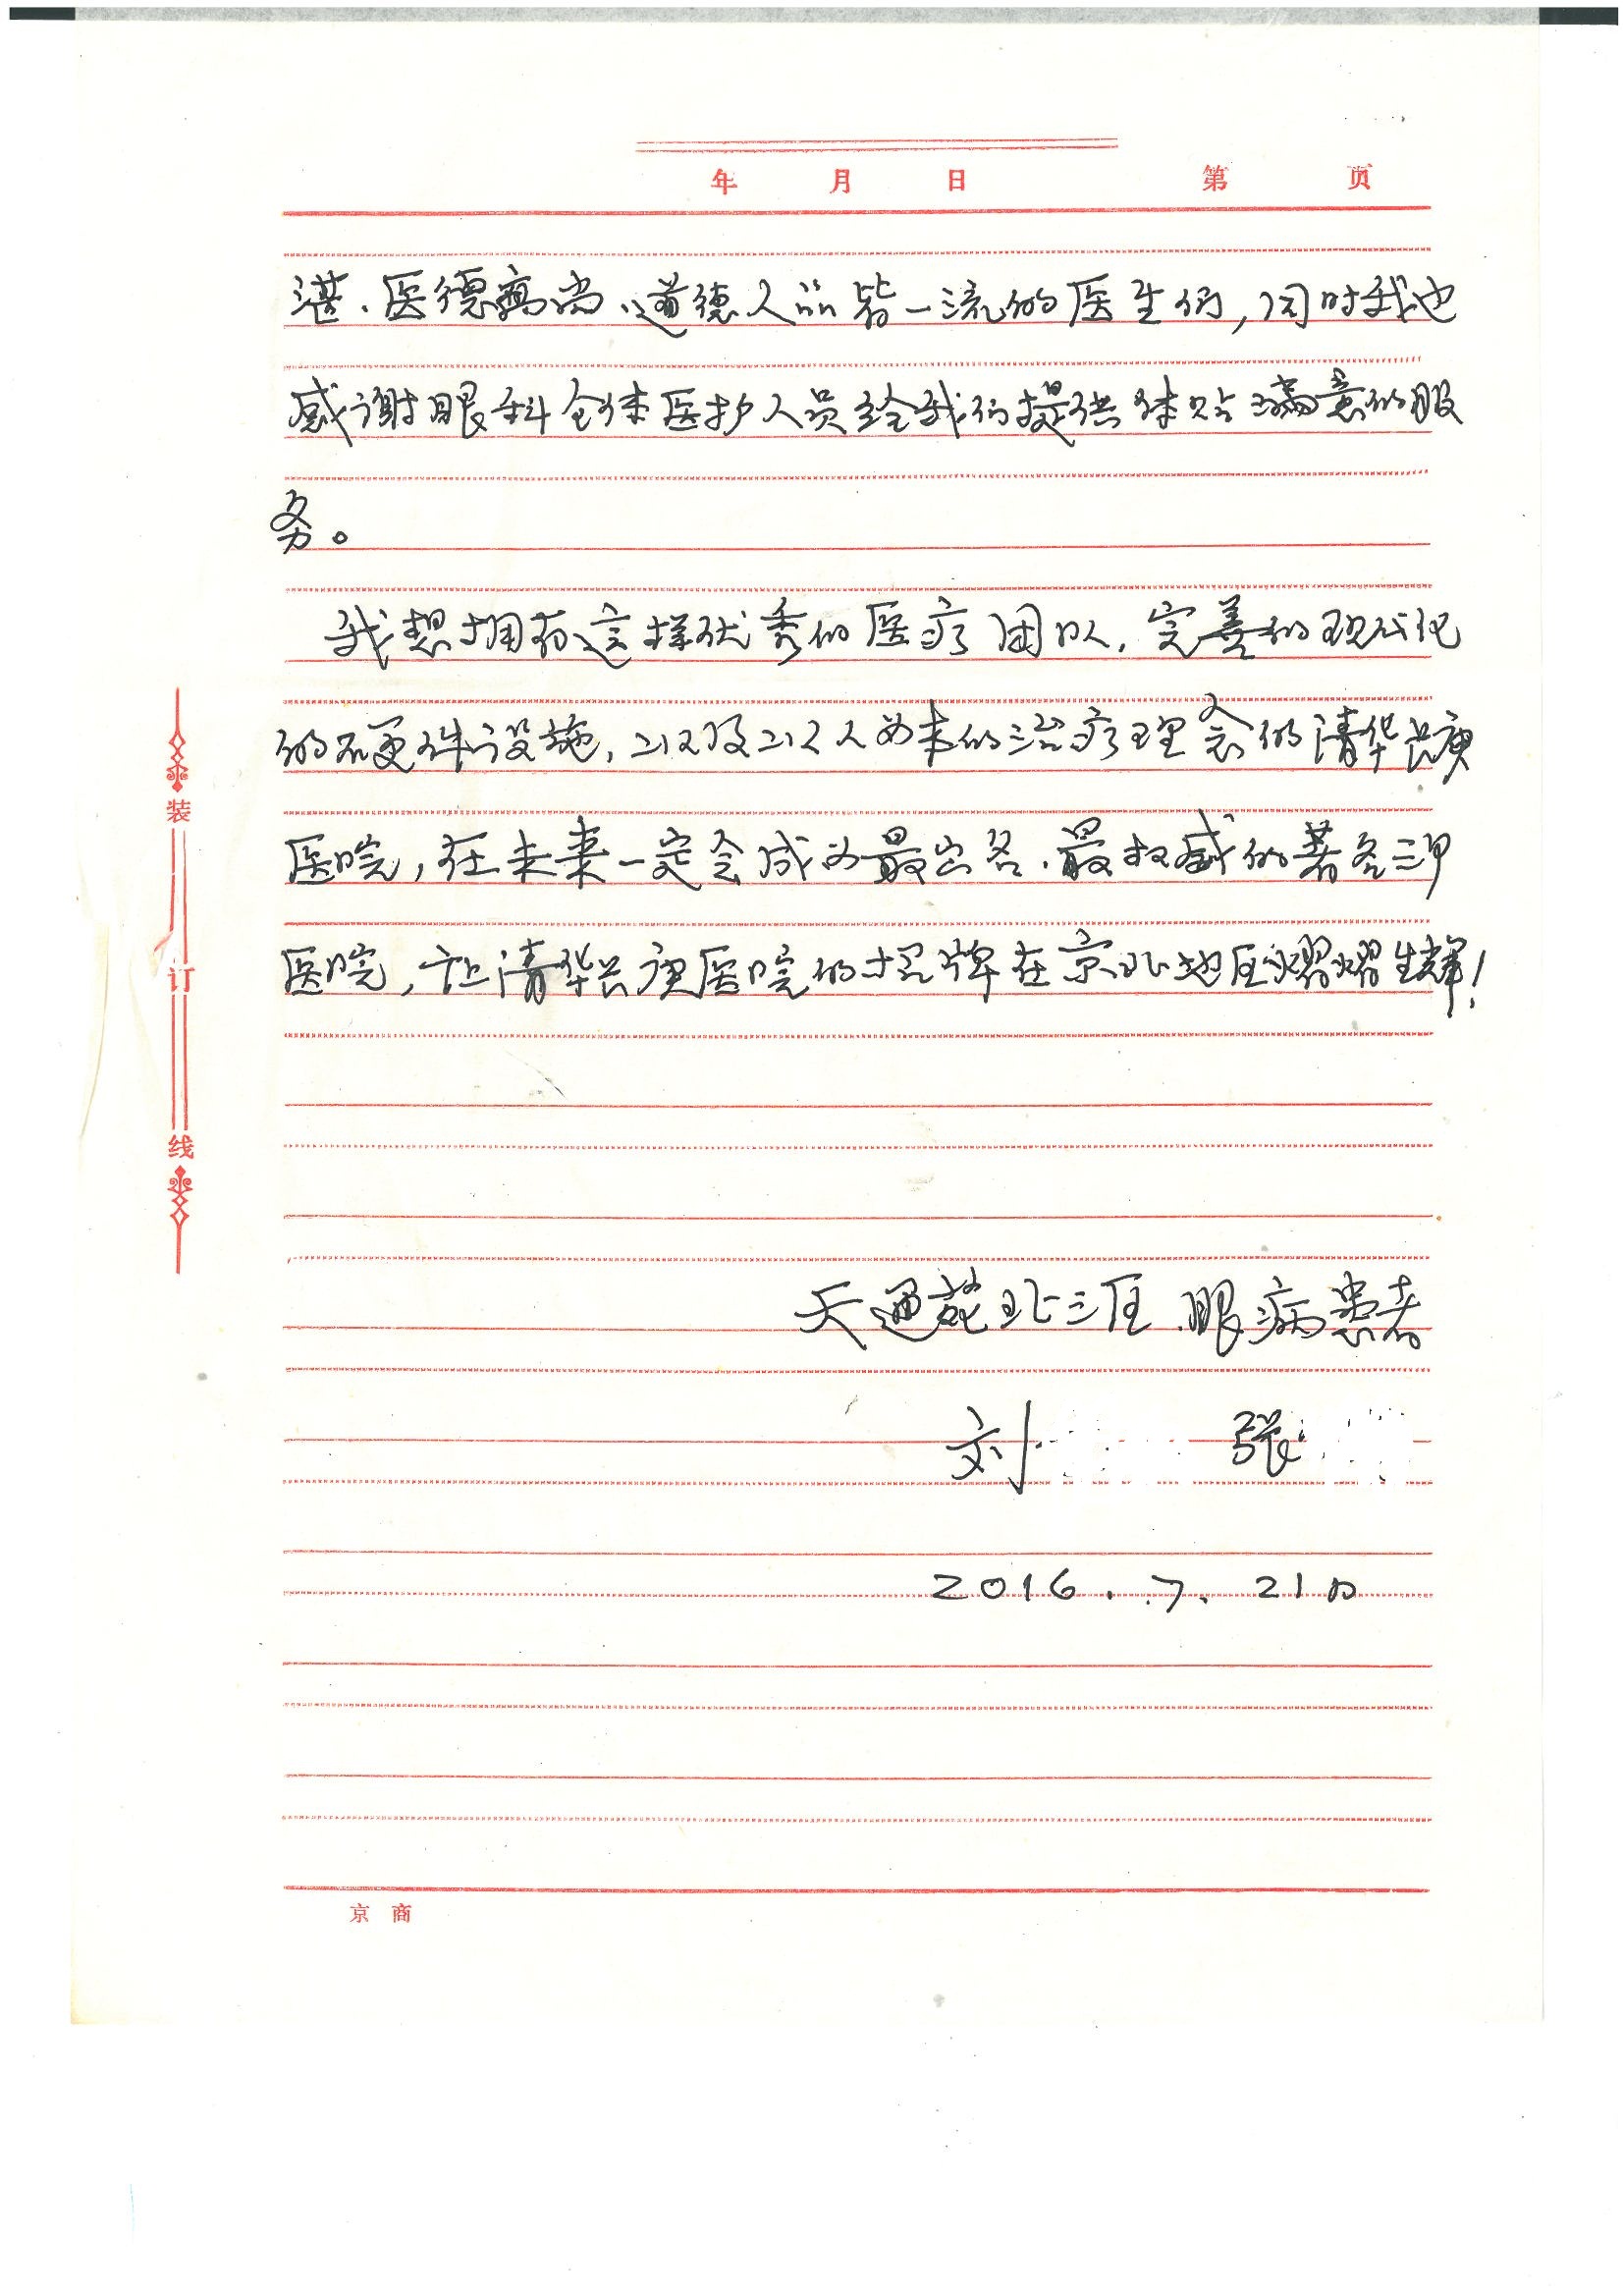 年 月 日 第 页
湛、医德高尚、道德人品皆一流的医生们,同时我也
感谢眼科全体医护人员给我们提供体贴满意的服
务。
我想拥有这样优秀的医疗团队,完善的现代化
的硬件设施,以及以人为本的治疗理念的清华长庚
医院,在未来一定会成为最出名、最权威的著名三甲
医院,让清华长庚医院的招牌在京北地区熠熠生辉!
天通苑北三区 眼病患者
刘 张
2016.7.21日
装
订
线
京商